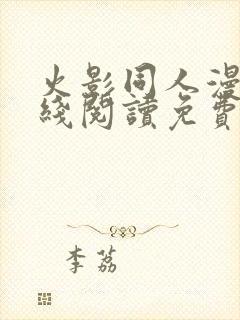 火影同人漫
綫閱讀免費
李荔